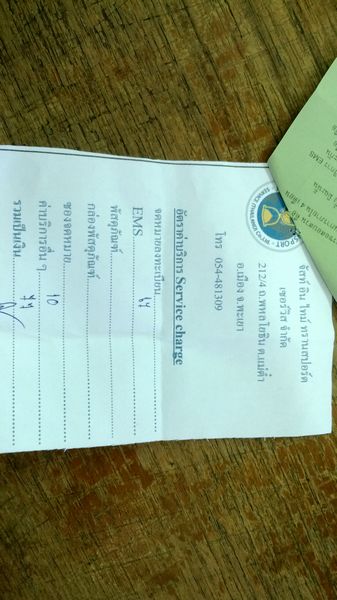 จัสท์ อิน ไทม์ ทรานสปอร์ต
เซอร์วิส จำกัด
212/4 ถ.พหลโยธิน ต.แม่ต๋ำ
อ.เมือง จ.พะเยา
โทร 054-481309
อัตราค่าบริการ Service charge
จดหมายลงทะเบียน
EMS 67
พัสดุภัณฑ์
กล่องพัสดุภัณฑ์
ซองจดหมาย 10
ค่าบริการอื่น ๆ
รวมเป็นเงิน 77